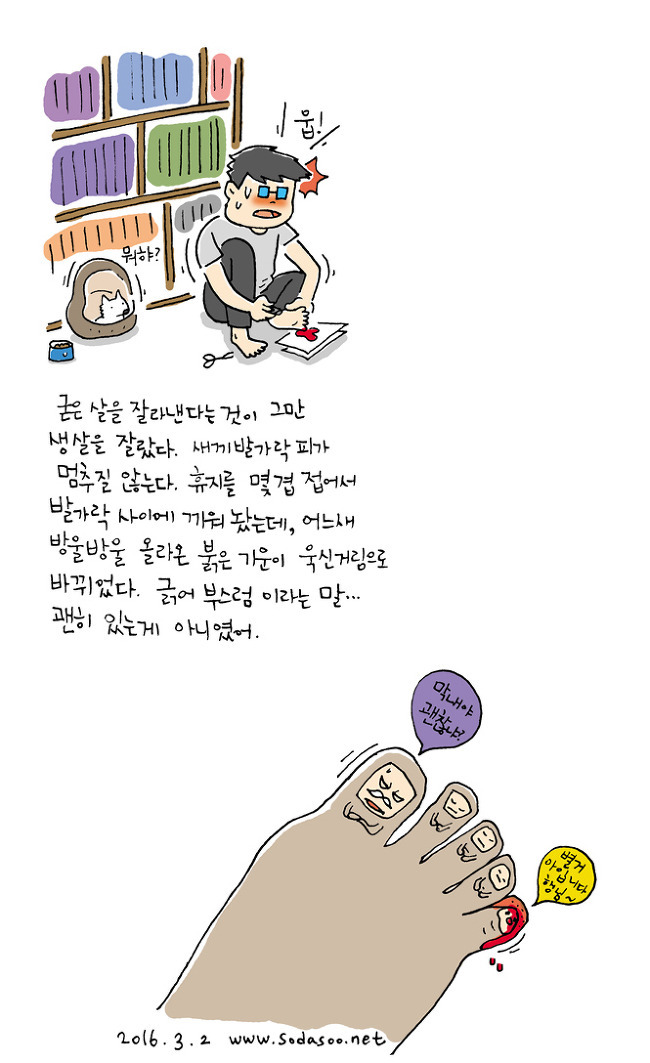 웁!
뭐햐?
굳은 살을 잘라낸다는 것이 그만
생살을 잘랐다. 새끼발가락 피가
멈추질 않는다. 휴지를 몇겹 접어서
발가락 사이에 끼워 놨는데, 어느새
방울방울 올라온 붉은 기운이 욱신거림으로
바뀌었다. 긁어 부스럼 이라는 말...
괜히 있는게 아니였어.
막내야
괜찮냐?
별거
아입니다
행님~
2016.3.2 www.sodasoo.net